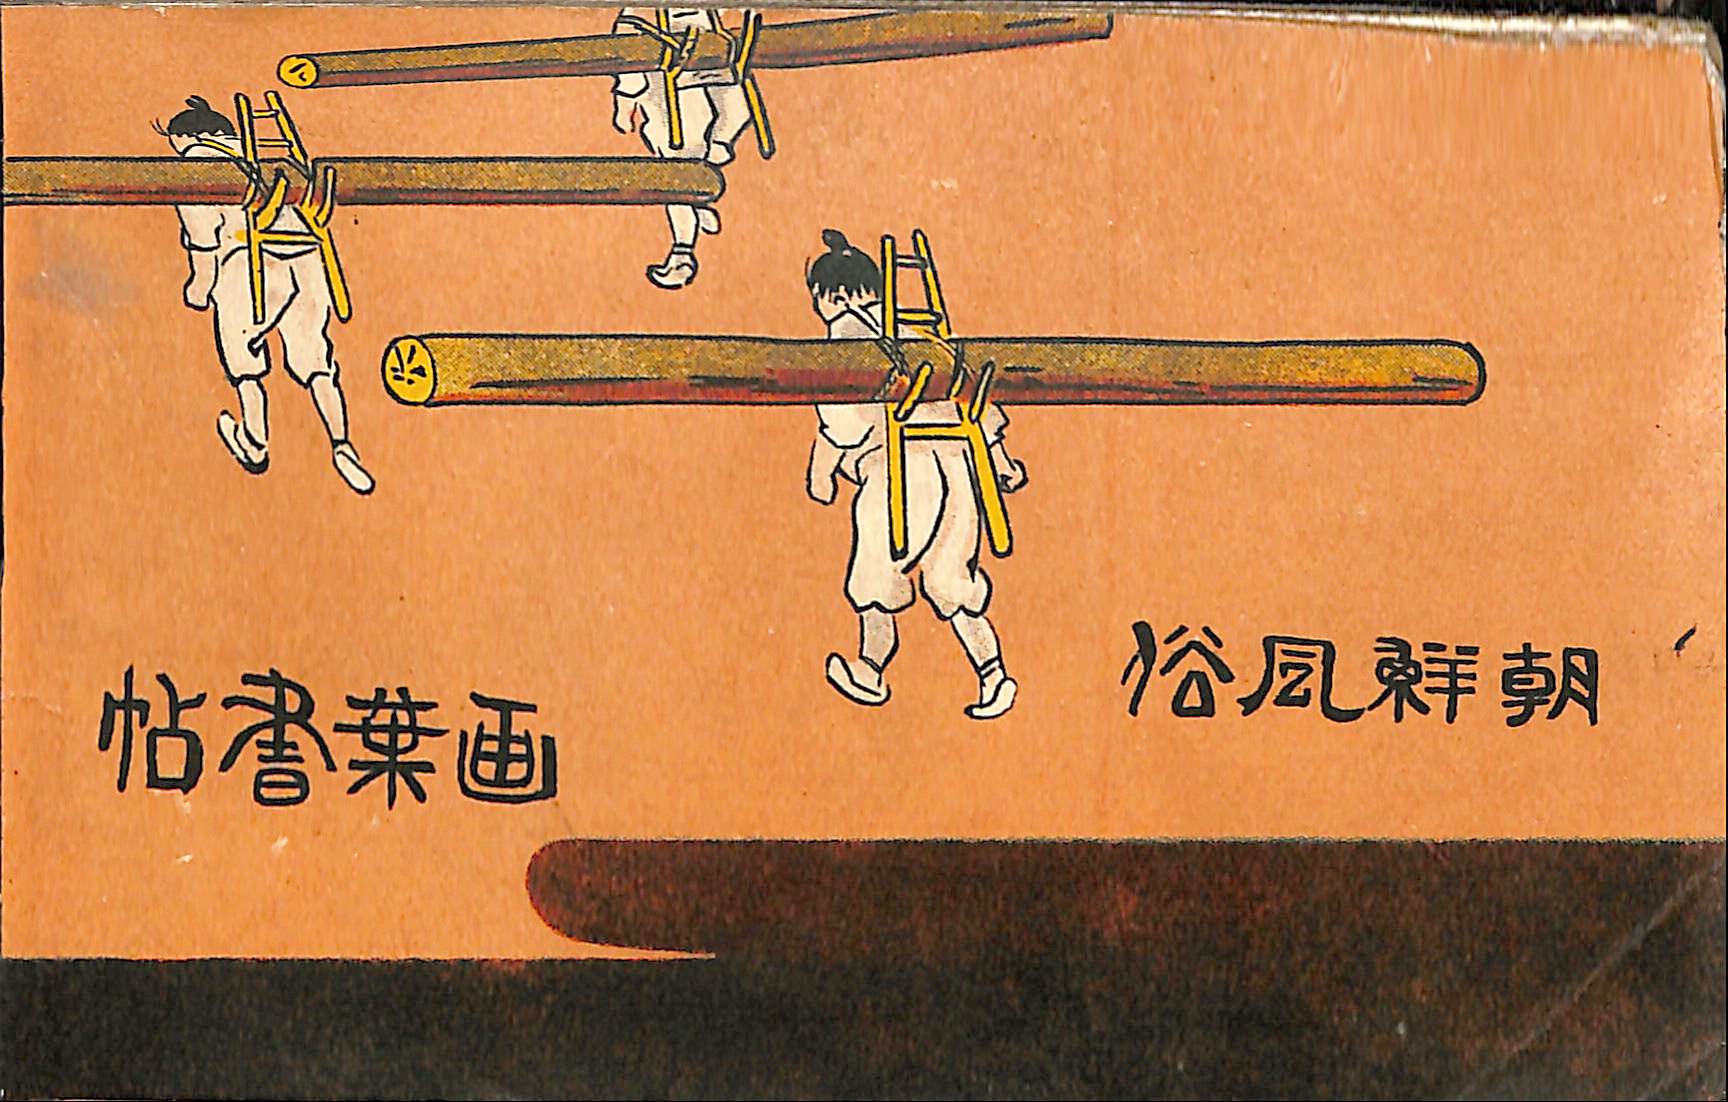 朝鮮風俗
画葉書帖